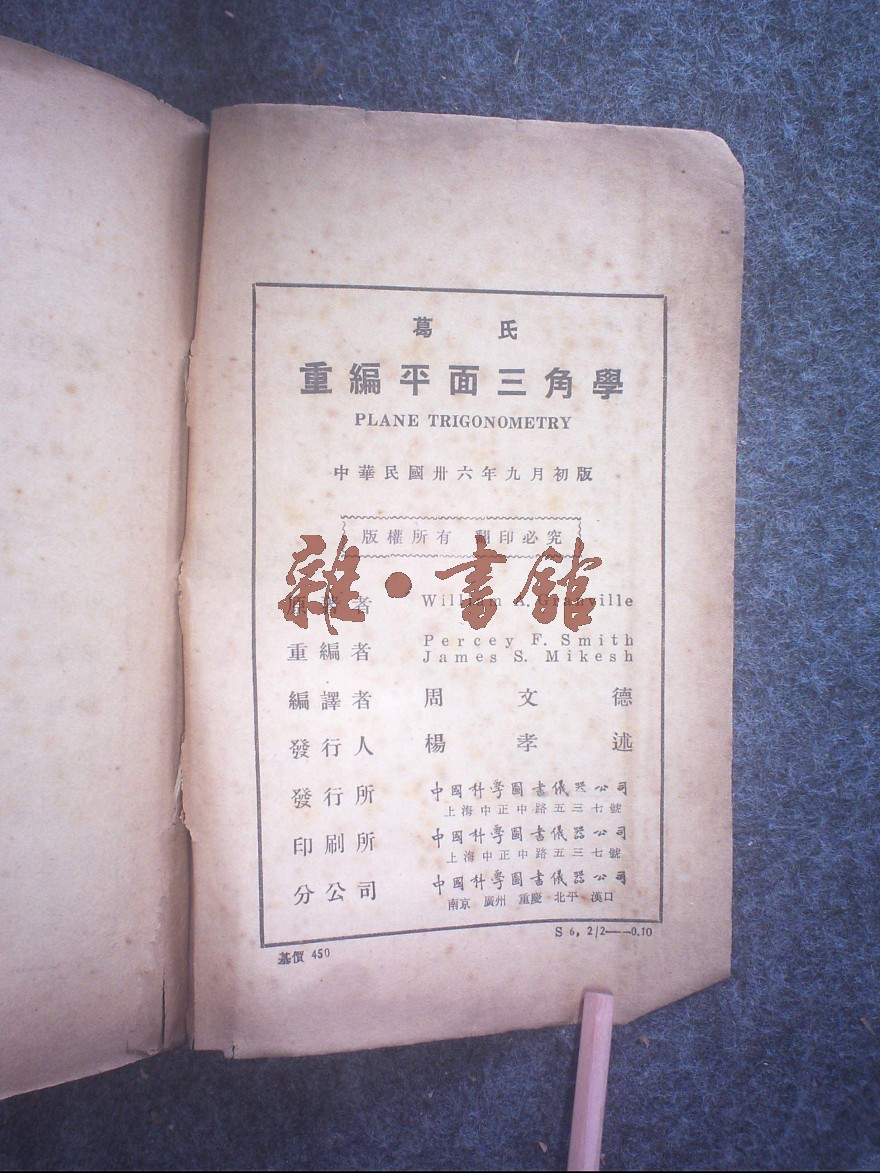 葛氏
重編平面三角學
PLANE TRIGONOMETRY
中華民國卅六年九月初版
版權所有 翻印必究
雜·書館
原著者 William A. Granville
重編者 Percey F. Smith
James S. Mikesh
編譯者 周文德
發行人 楊孝述
發行所 中國科學圖書儀器公司
上海中正中路五三七號
印刷所 中國科學圖書儀器公司
上海中正中路五三七號
分公司 中國科學圖書儀器公司
南京 廣州 重慶 北平 漢口
基價 450
S 6, 2/2——0.10